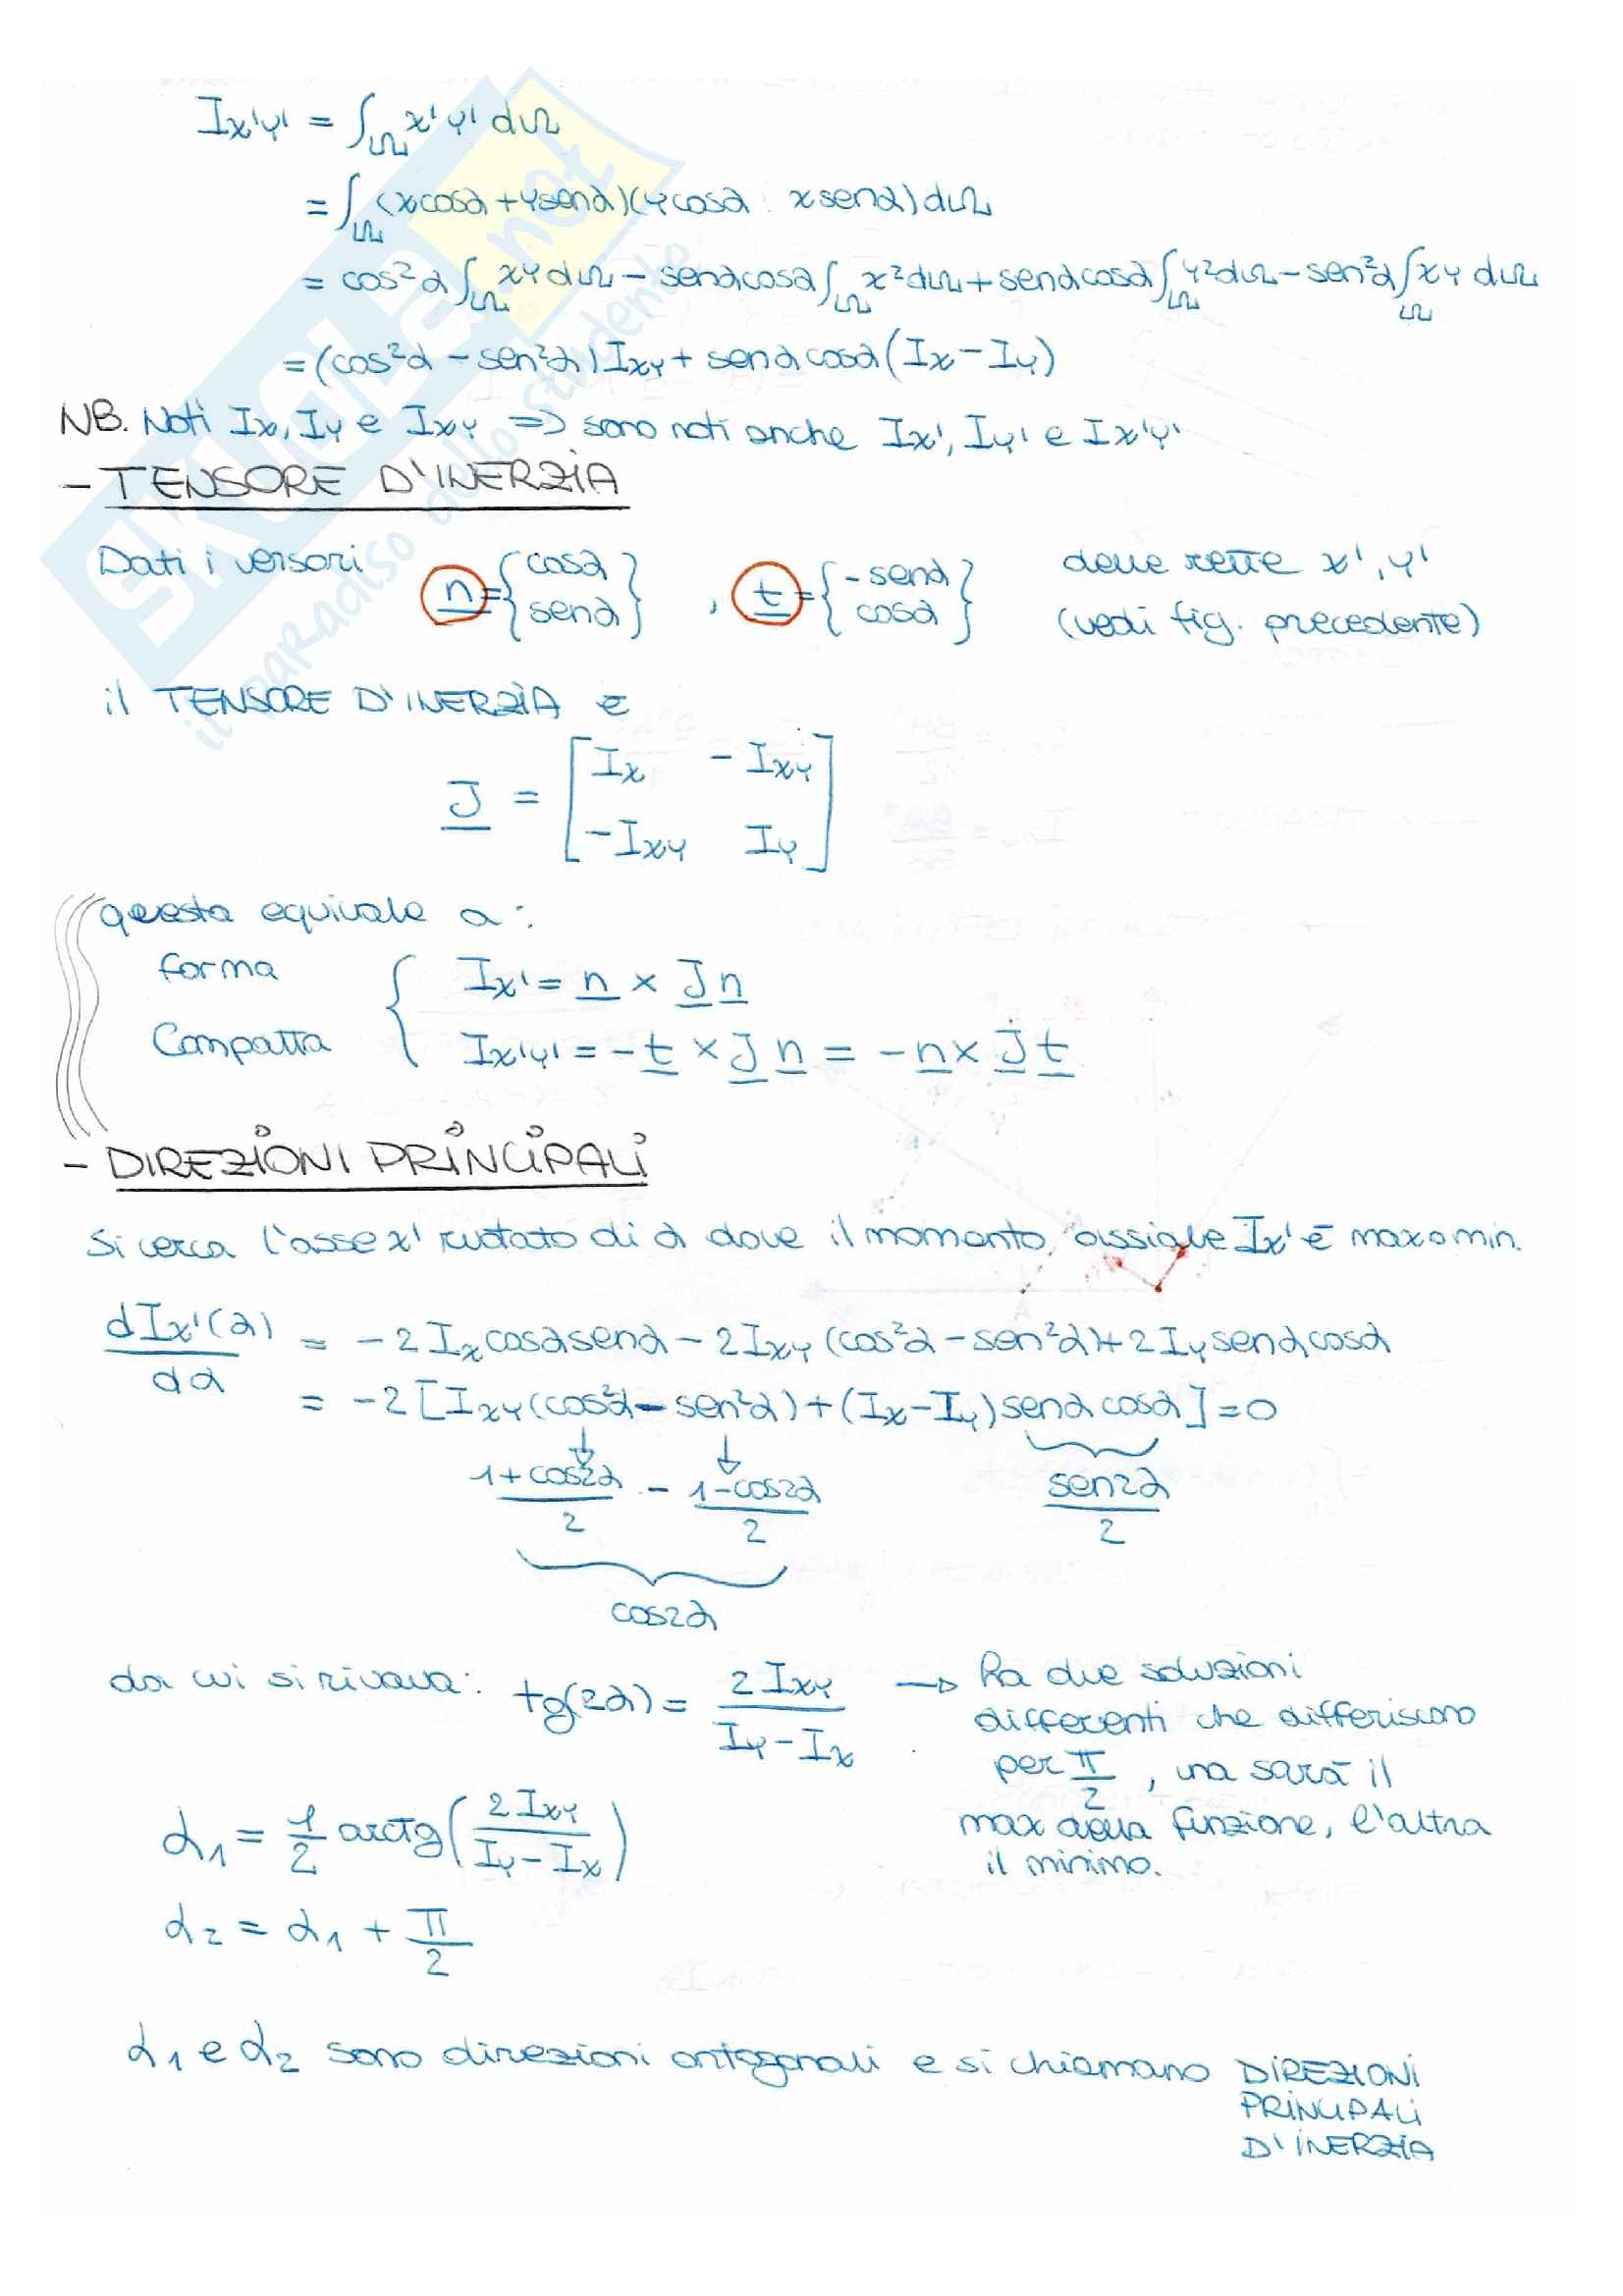 Ix'y' = ∫Ω x'y' dΩ
= ∫Ω (xcosα + ysenα)(ycosα xsenα) dΩ
= cos²α ∫Ω xy dΩ - senαcosα ∫Ω x² dΩ + senαcosα ∫Ω y² dΩ - sen²α ∫Ω xy dΩ
= (cos²α - sen²α) Ixy + senαcosα (Ix - Iy)
NB. Noti Ix, Iy e Ixy => sono noti anche Ix', Iy' e Ix'y'
- TENSORE D'INERZIA
Dati i versori n = {cosα senα} , t = {-senα cosα} delle rette x', y'
(vedi fig. precedente)
il TENSORE D'INERZIA è
J = [Ix -Ixy
-Ixy Iy]
questa equivale a:
forma Ix' = n × J n
Compatta Ix'y' = - t × J n = - n × J t
- DIREZIONI PRINCIPALI
Si cerca l'asse x' ruotato di α dove il momento assiale Ix' è max o min.
dIx'(α)/dα = -2 Ix cosα senα - 2 Ixy (cos²α - sen²α) + 2 Iy senα cosα
= -2 [Ixy (cos²α - sen²α) + (Ix - Iy) senα cosα] = 0
(1+cos2α)/2 - (1-cos2α)/2 sen2α/2
cos2α
da cui si ricava: tg(2α) = 2 Ixy / (Iy - Ix) → ha due soluzioni
differenti che differiscono
per π/2, una sarà il
max della funzione, l'altra
il minimo.
α1 = 1/2 arctg (2 Ixy / (Iy - Ix))
α2 = α1 + π/2
α1 e α2 sono direzioni ortogonali e si chiamano DIREZIONI
PRINCIPALI
D'INERZIA
SKUOLA.not
il paradiso dello studente